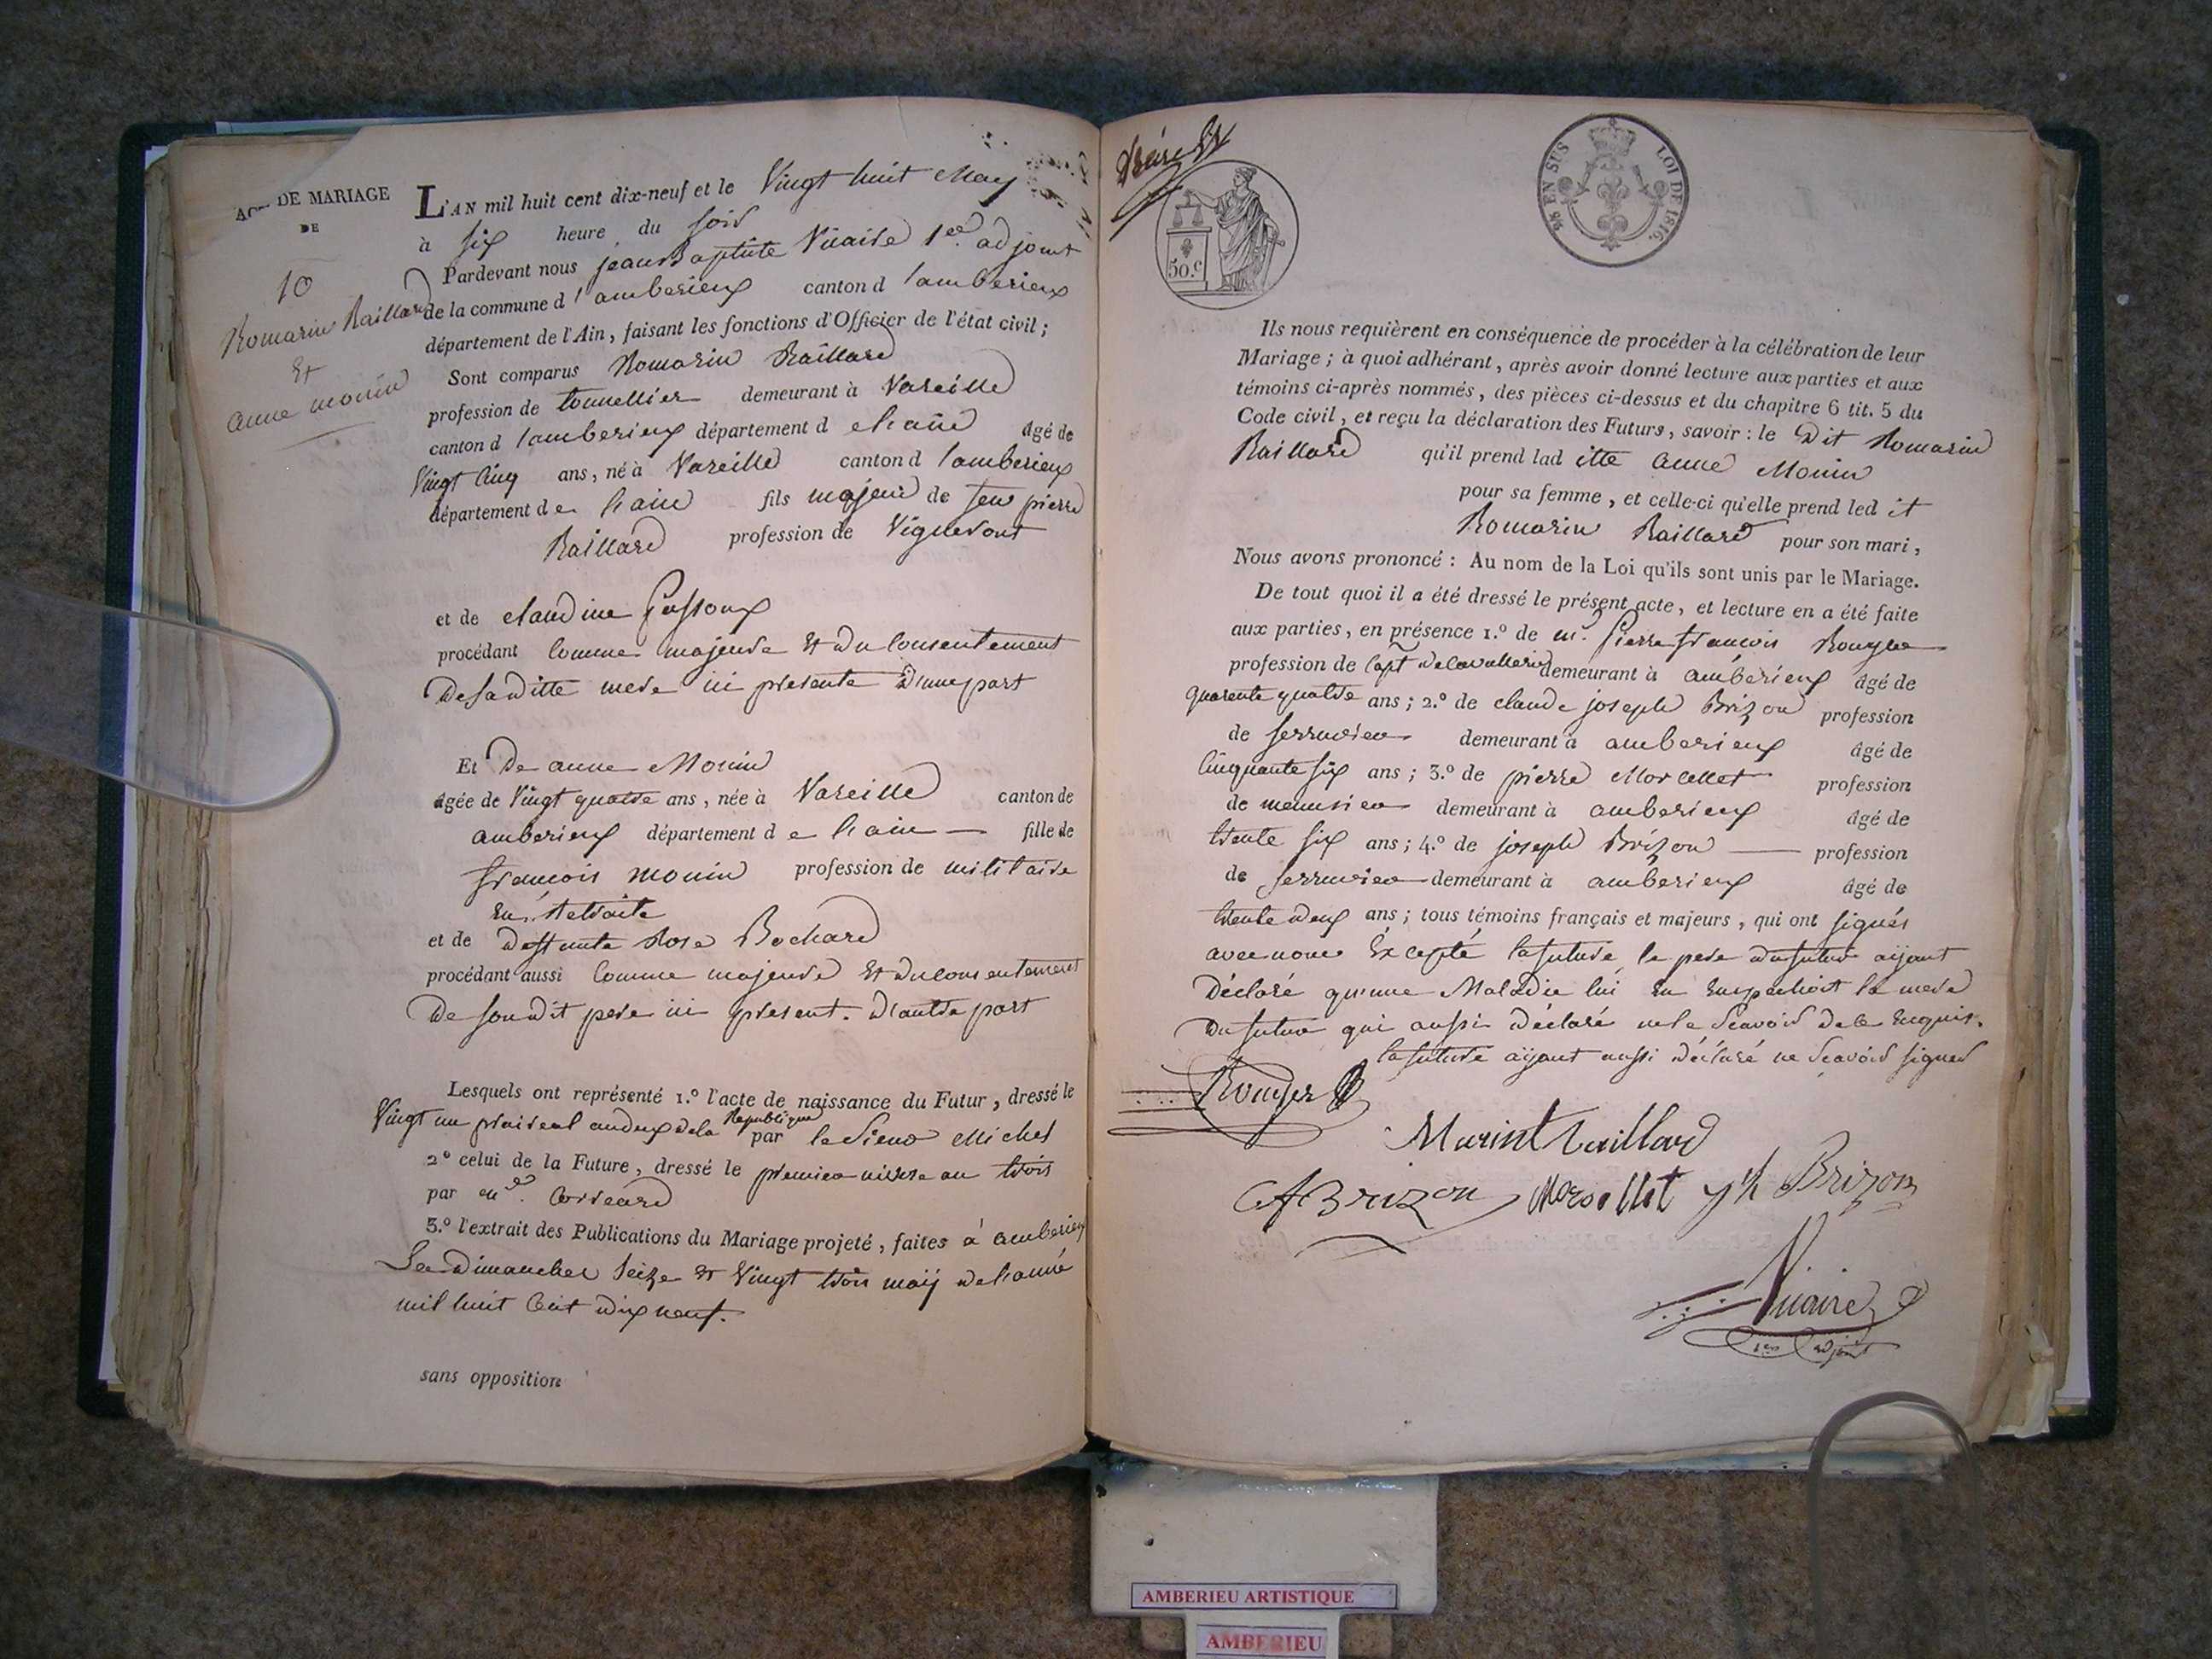 DE MARIAGE
DE
10
Romarin Raillard
Et
anne monin
L'AN mil huit cent dix-neuf et le Vingt huit May
à six heure du soir
Pardevant nous jean Baptiste Vicaire 1er adjoint
de la commune d'amberieux canton d'amberieux
département de l'Ain, faisant les fonctions d'Officier de l'état civil;
Sont comparus Romarin Raillard
profession de tonnellier demeurant à Vareille
canton d'amberieux département d e l'ain âgé de
Vingt Cinq ans, né à Vareille canton d'amberieux
département d e l'ain fils majeur de feu pierre
Raillard profession de Vigneront
et de claudine
procédant Comme majeure Et du Consentement
De sa ditte mere ici presente D'une part
Et De anne Monin
âgée de Vingt quatre ans, née à Vareille canton de
amberieux département d e l'ain fille de
francois monin profession de militaire
En Retraite
et de deffunte Rose Bochard
procédant aussi Comme majeure Et du consentement
De son dit pere ici present. D'autre part
Lesquels ont représenté 1.º l'acte de naissance du Futur, dressé le
Vingt un praireal an deux de la Republique par le Sieur Michel
2º celui de la Future, dressé le premier nivose an trois
par
3.º l'extrait des Publications du Mariage projeté, faites à amberieux
Les Dimanches Seize Et Vingt trois maÿ de l'anné
mil huit Cent dix neuf.
sans opposition
50.c
EN SUS LOI DE 1816.
Ils nous requièrent en conséquence de procéder à la célébration de leur
Mariage; à quoi adhérant, après avoir donné lecture aux parties et aux
témoins ci-après nommés, des pièces ci-dessus et du chapitre 6 tit. 5 du
Code civil, et reçu la déclaration des Futurs, savoir: le Dit Romarin
Raillard qu'il prend lad itte anne Monin
pour sa femme, et celle-ci qu'elle prend led it
Romarin Raillard pour son mari,
Nous avons prononcé: Au nom de la Loi qu'ils sont unis par le Mariage.
De tout quoi il a été dressé le présent acte, et lecture en a été faite
aux parties, en présence 1.º de mr. Pierre francois Rouyer
profession de Capt de Cavallerie demeurant à amberieux âgé de
quarente quatre ans; 2.º de claude joseph Brizon profession
de serrurier demeurant à amberieux âgé de
Cinquante six ans; 3.º de pierre Morcellet profession
de menusier demeurant à amberieux âgé de
trente six ans; 4.º de joseph Brizon profession
de serrurier demeurant à amberieux âgé de
trente deux ans; tous témoins français et majeurs, qui ont signés
avec nous Excepté la future le pere du futur aÿant
Déclaré qu'une Maladie lui En Empechoit la mere
Du futur qui aussi Déclaré ne le Scavoir de ce Enquis.
la future aÿant aussi Déclaré ne Scavoir signer
Rouyer
Marint Raillard
Brizon Morcellet jh Brizon
Vicaire
1er adjoint
AMBERIEU ARTISTIQUE
AMBERIEU